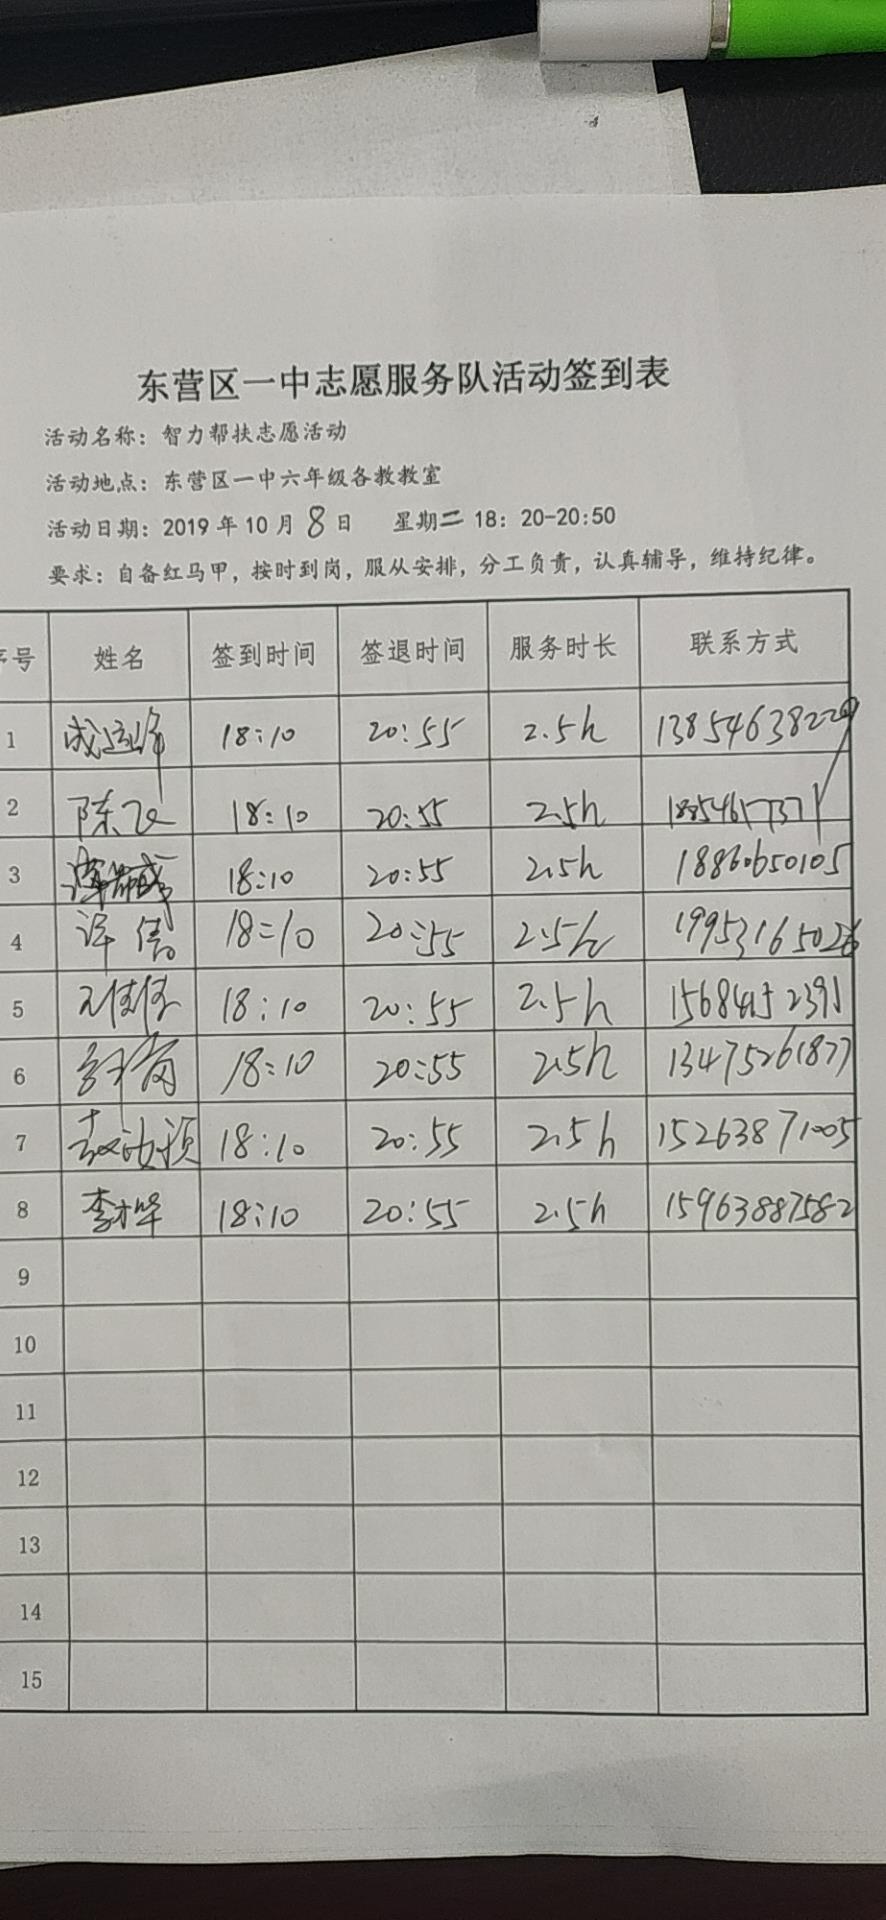 东营区一中志愿服务队活动签到表
活动名称：智力帮扶志愿活动
活动地点：东营区一中六年级各教教室
活动日期：2019 年 10 月 8 日 星期二 18：20-20:50
要求：自备红马甲，按时到岗，服从安排，分工负责，认真辅导，维持纪律。
序号 姓名 签到时间 签退时间 服务时长 联系方式
1 18:10 20:55 2.5h 13854638229
2 陈飞 18:10 20:55 2.5h
3 18:10 20:55 2.5h 18860650105
4 18:10 20:55 2.5h 19953165026
5 18:10 20:55 2.5h
6 18:10 20:55 2.5h 13475261877
7 18:10 20:55 2.5h 15263871005
8 18:10 20:55 2.5h 15963887582
9
10
11
12
13
14
15